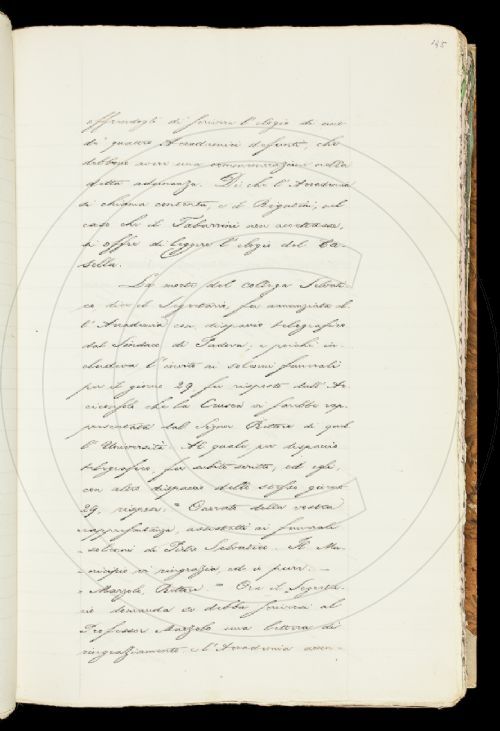 195
offrendogli di scrivere l'elogio di uno
dei quattro Accademici defunti, che
debbono avere una commemorazione nella
detta adunanza. Di che l'Accademia
si chiama contenta, e il Rigutini, nel
caso che il Tabarrini non accettasse,
si offre di leggere l'elogio del Ca-
sella.
La morte del collega Selvati-
co dice il Segretario, fu annunziata al-
l'Accademia con dispaccio telegrafico
dal Sindaco di Padova, e poichè in-
chiudeva l'invito ai solenni funerali
per il giorno 29 fu risposto dall'Ar-
ciconsolo che la Crusca vi sarebbe rap-
presentata dal Signor Rettore di quel-
l'Università. Al quale per dispaccio
telegrafico, fu subito scritto, ed egli,
con altro dispaccio dello stesso giorno
29, rispose. " Onorato della vostra
rappresentanza, assistetti ai funerali
solenni di Pietro Selvatico. Il Mu-
nicipio vi ringrazia, ed io pure. —
" Marzolo, Rettore " Ora il Segreta-
rio domanda se debba scrivere al
Professor Marzolo una lettera di
ringraziamento e l'Accademia accon-